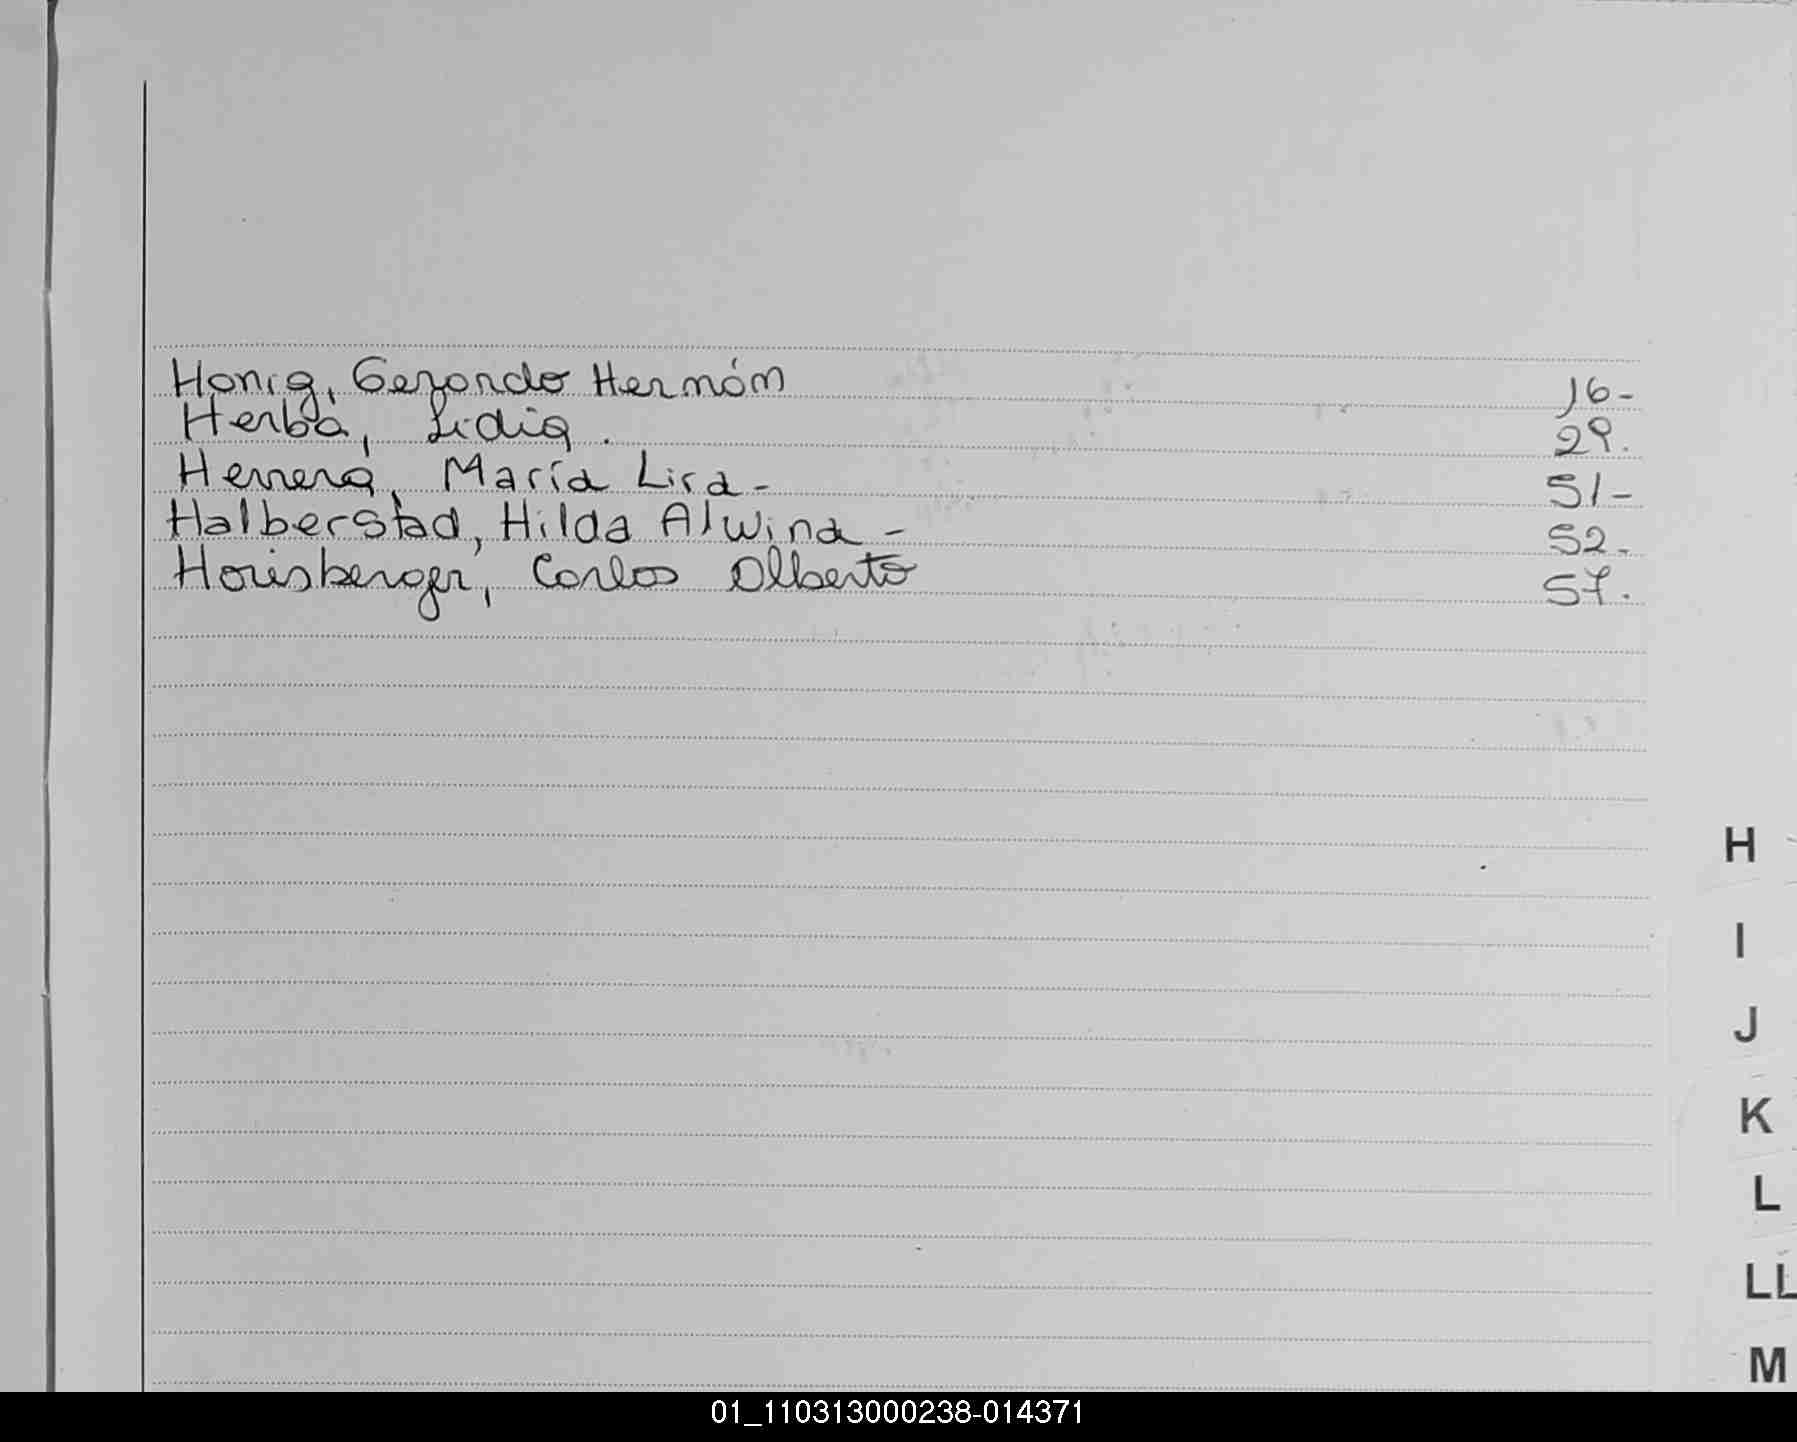 Honig, Gerardo Hernán 16-
Herba, Lidia. 29.
Herrera, María Lisa- 51-
Halberstad, Hilda Alwina- 52-
Horisberger, Carlos Alberto 57.
H
I
J
K
L
LL
M
01_110313000238-014371